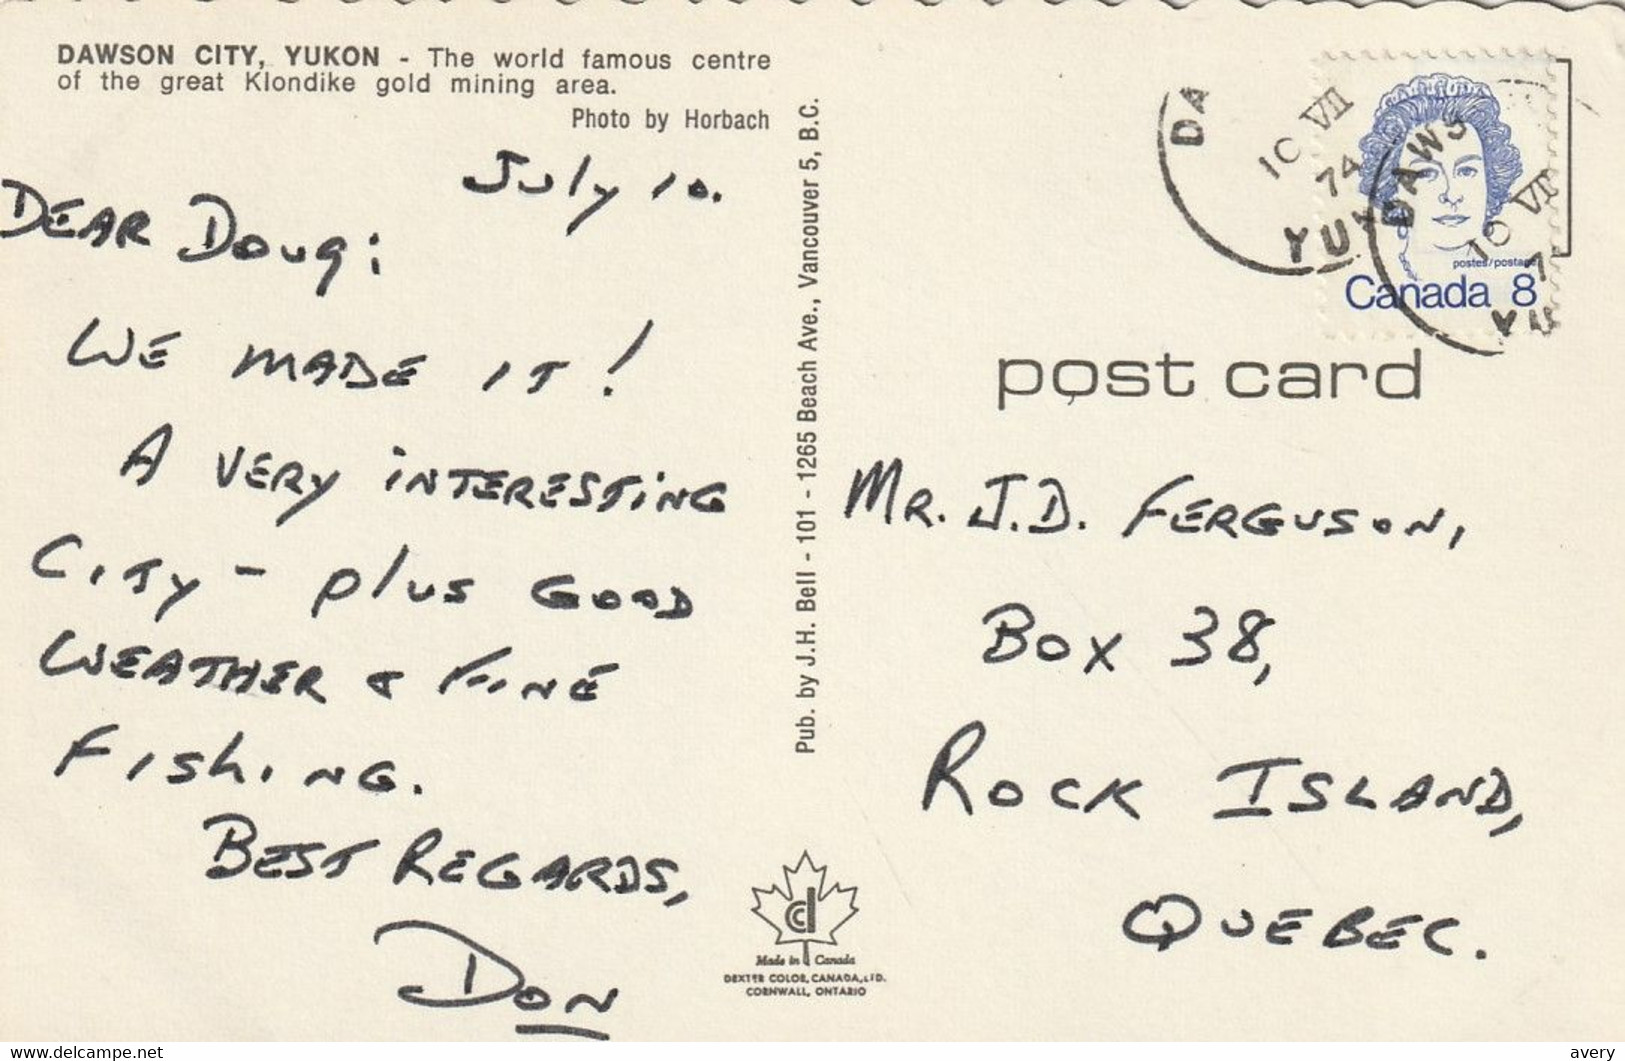 DAWSON CITY, YUKON - The world famous centre
of the great Klondike gold mining area.
Photo by Horbach
July 10.
DEAR DOUG:
WE MADE IT!
A VERY INTERESTING
CITY - plus GOOD
WEATHER & FINE
FISHING.
BEST REGARDS,
DON
Pub. by J.H. Bell - 101 - 1265 Beach Ave., Vancouver 5, B.C.
Made in Canada
DEXTER COLOR, CANADA, LTD.
CORNWALL, ONTARIO
DA
10 VII
74
YU
DAWS
10 VI
7
YU
postes/postage
Canada 8
post card
MR. J.D. FERGUSON,
BOX 38,
ROCK ISLAND,
QUEBEC.
www.delcampe.net
avery